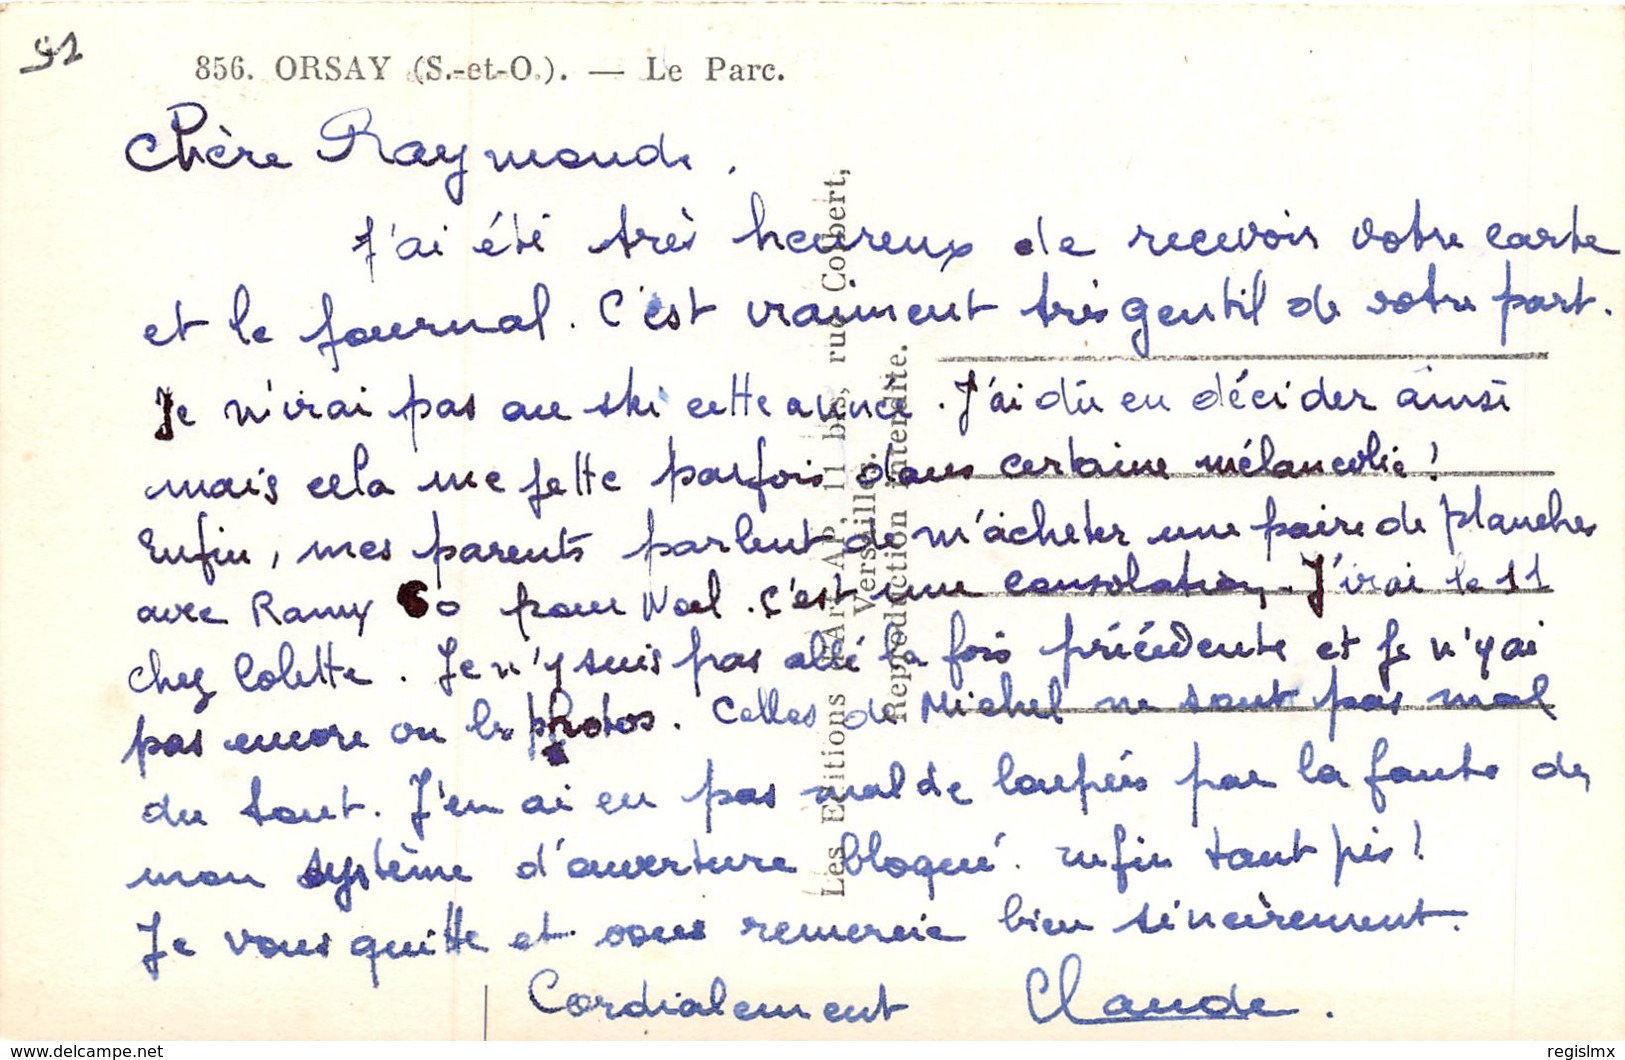 91
856. ORSAY (S.-et-O.). — Le Parc.
Chère Raymonde,
J'ai été très heureux de recevoir votre carte
et le journal. C'est vraiment très gentil de votre part.
Je n'irai pas au ski cette année. J'ai dû en décider ainsi
mais cela me jette parfois dans certaine mélancolie !
Enfin, mes parents parlent de m'acheter une paire de planches
avec Ramy 60 pour Noel. C'est une consolation. J'irai le 11
chez Colette. Je n'y suis pas allé la fois précédente et je n'y ai
pas encore vu les photos. Celles de Michel ne sont pas mal
du tout. J'en ai eu pas mal de loupées par la faute de
mon système d'ouverture bloqué. Enfin tant pis !
Je vous quitte et vous remercie bien sincèrement.
Cordialement Claude.
Les Editions d'Art AP, 11 bis, rue Colbert,
Versailles.
Reproduction interdite.
www.delcampe.net
regislmx